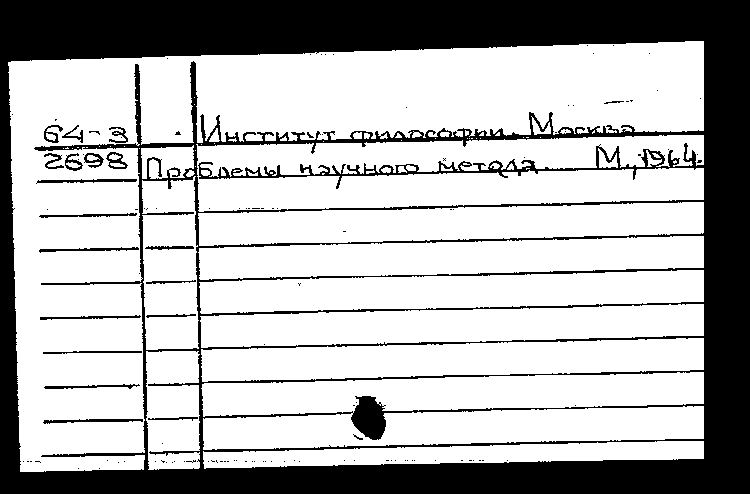 64-3 Институт философии. Москва
2698 Проблемы научного метода. М., 1964.